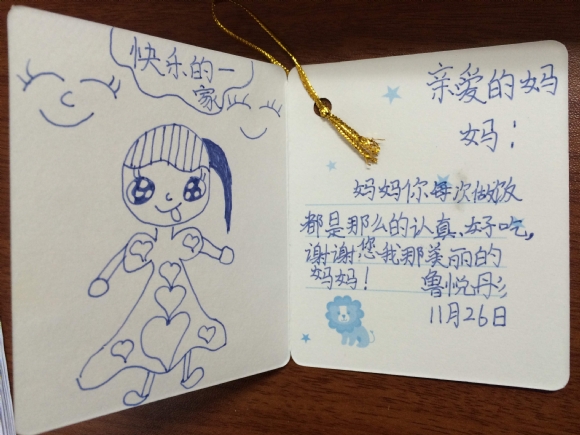 快乐的一
家
亲爱的妈
妈：
妈妈你每次做饭
都是那么的认真、好吃，
谢谢您我那美丽的
妈妈！
鲁悦彤
11月26日